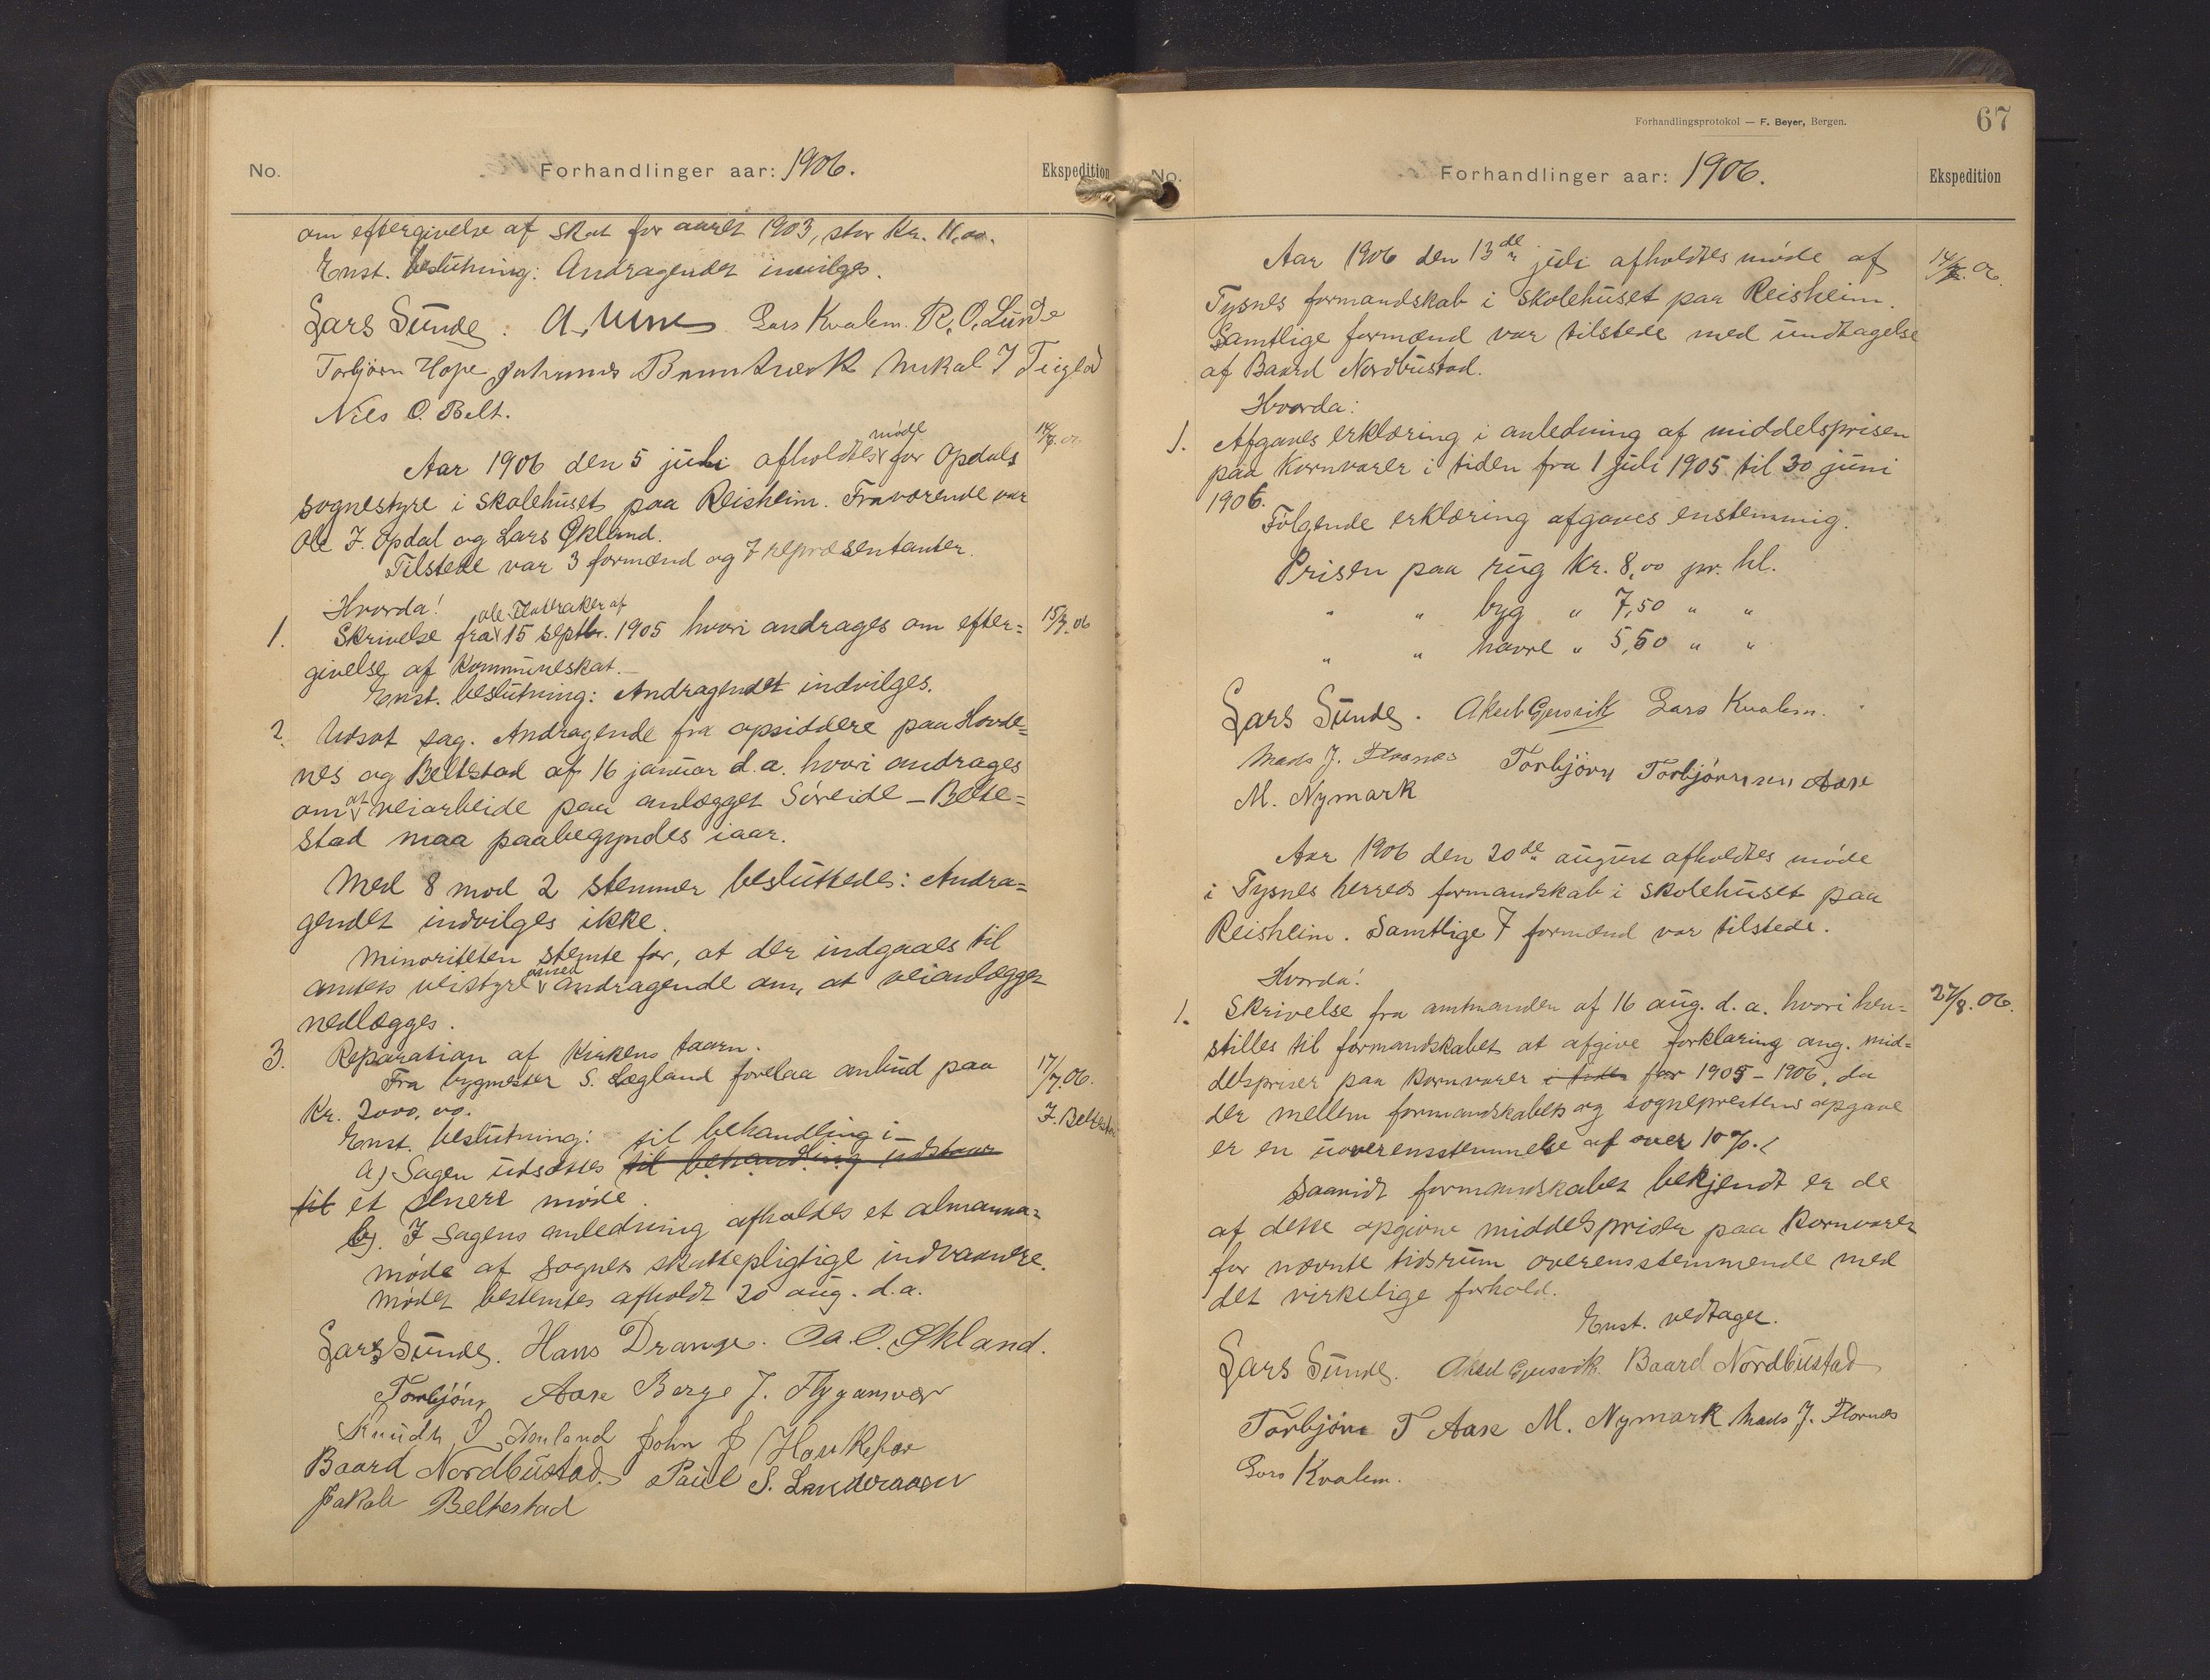 No. Forhandlinger aar: 1906. Ekspedition
om eftergivelse af skat for aaret 1903, stor Kr. 11,00.
Enst. beslutning: Andragendet invilges.
Lars Sunde. Lars Kvalem. R. O. Lunde
Torbjørn Hope Johannes Mikal J Teigland
Nils O. Belt.
møde
Aar 1906 den 5 juli afholdtes for Opdals
sognestyre i skolehuset paa Reisheim. Fraværende var
Ole J. Opdal og Lars Økland.
Tilstede var 3 formænd og 7 repræsentanter.
Hvorda!
ole Flatraker af
1. Skrivelse fra 15 septbr. 1905 hvori andrages om efter= 15/7.06
givelse af Kommuneskat.
Enst. beslutning: Andragendet indvilges.
2. Udsat sag. Andragende fra opsiddere paa Hovde=
nes og Beltestad af 16 januar d.a. hvori andrages
om at veiarbeide paa anlægget Søreide – Belte=
stad maa paabegyndes iaar.
Med 8 mod 2 stemmer besluttedes: Andra=
gendet indvilges ikke.
Minoriteten stemte for, at der indgaaes til
amtets veistyre med andragende om, at veianlægget
nedlægges.
3. Reparation af Kirkens taarn.
Fra bygmester S. Lægland forelaa anbud paa 17/7.06.
Kr. 2000,00. J. Beltestad
Enst. beslutning: til behandling i
a) Sagen udsættes til behandling udstaar
til et senere møde.
b). I sagens anledning afholdes et almanna=
møde af sognets skattepligtige indvaanere.
Mødet bestemtes afholdt 20 aug. d.a.
Lars Sunde. Hans Drange. Oa. O. Økland.
Torbjørn Aase Berge J. Flygansvær
Knudt John J Haukefær
Baard Nordbustad. Paul S. Landeraaen
Jakob Beltestad
Forhandlingsprotokol — F. Beyer, Bergen. 67
No. Forhandlinger aar: 1906. Ekspedition
Aar 1906 den 13de juli afholdtes møde af 14/7.06.
Tysnes formandskab i skolehuset paa Reisheim.
Samtlige formænd var tilstede med undtagelse
af Baard Nordbustad.
Hvorda:
1. Afgaves erklæring i anledning af middelsprisen
paa Kornvarer i tiden fra 1 juli 1905 til 30 juni
1906.
Følgende erklæring afgaves enstemmig.
Prisen paa rug Kr. 8,00 pr. hl.
" " byg " 7,50 " "
" " havre " 5,50 " "
Lars Sunde. Aksel Gjersvik Lars Kvalem.
Mads J. Flornes Torbjørn Torbjørnsen Aase
M. Nymark
Aar 1906 den 20de august afholdtes møde
i Tysnes herreds formandskab i skolehuset paa
Reisheim. Samtlige 7 formænd var tilstede.
Hvorda!
1. Skrivelse fra amtmanden af 16 aug. d.a. hvori hen= 27/8.06.
stilles til formandskabet at afgive forklaring ang. mid=
delspriser paa Kornvarer i tiden for 1905–1906, da
der mellem formandskabets og sogneprestens opgave
er en uoverensstemmelse af over 10 %.
Saavidt formandskabet bekjendt er de
af dette opgivne middelspriser paa Kornvarer
for nævnte tidsrum overensstemmende med
det virkelige forhold.
Enst. vedtaget.
Lars Sunde. Aksel Gjersvik. Baard Nordbustad
Torbjørn T Aase M. Nymark Mads J. Flornes
Lars Kvalem.